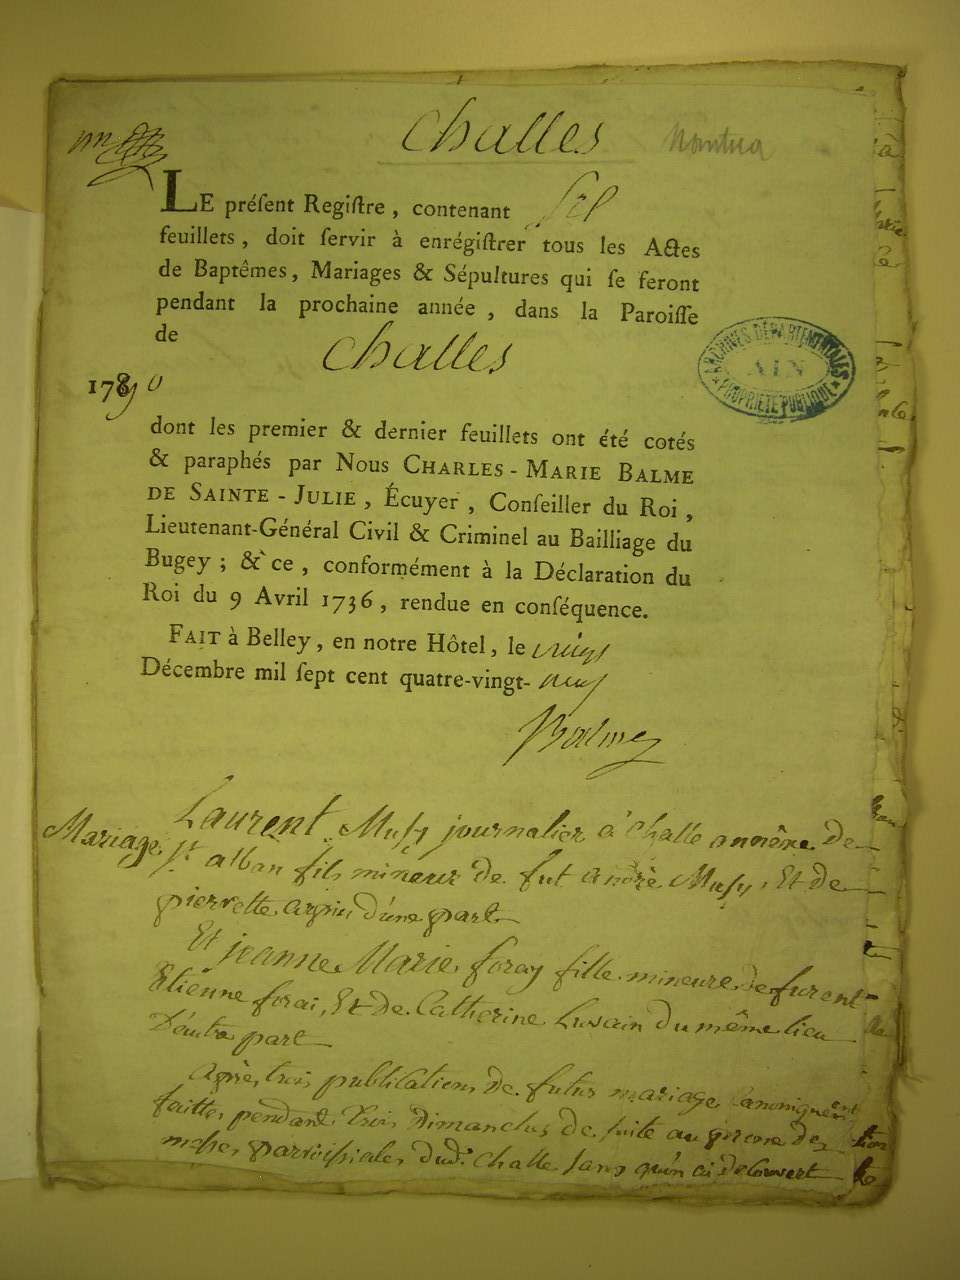 Challes
Nantua
LE préſent Regiſtre, contenant
feuillets, doit ſervir à enrégiſtrer tous les Actes
de Baptêmes, Mariages & Sépultures qui ſe feront
pendant la prochaine année, dans la Paroiſſe
de Challes
1790
ARCHIVES DÉPARTEMENTALES
AIN
PROPRIÉTÉ PUBLIQUE
dont les premier & dernier feuillets ont été cotés
& paraphés par Nous CHARLES-MARIE BALME
DE SAINTE-JULIE, Écuyer, Conſeiller du Roi,
Lieutenant-Général Civil & Criminel au Bailliage du
Bugey; & ce, conformément à la Déclaration du
Roi du 9 Avril 1736, rendue en conſéquence.
FAIT à Belley, en notre Hôtel, le vingt
Décembre mil ſept cent quatre-vingt-neuf
Balme
Mariage
Laurent Musy journalier à Challe annéxe de
St alban fils mineur de fut André Musy, Et de
pierrette d'une part
Et jeanne Marie foray fille mineure de furent
Etienne forai, Et de Catherine du même lieu
D'autre part
Après trois publications de futur mariage Canoniquement
faittes pendant trois Dimanches de suite au prone de
parroissiales dud. Challe sans qu'on ai découvert